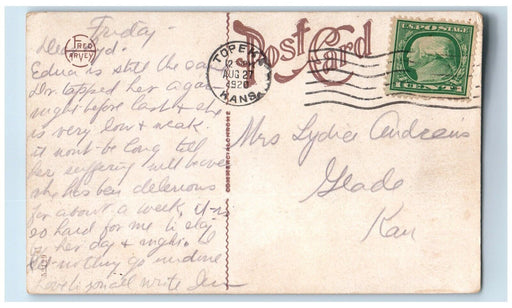 Friday
Dear Lyd-
FRED
HARVEY
Edna is still the same
Dr. tapped her again
night before last & she
is very low & weak
it wont be long till
her suffering will be over
she has ben delerious
for about a week, it is
so hard for me to stay
by her day & night. I
let nothing go undone
Love to you all write
Post Card
TOPEKA
AUG 27
1920
KANS.
U.S. POSTAGE
1 CENT 1
COMMERCIALCHROME
Mrs Lydia Andreas
Glade
Kan